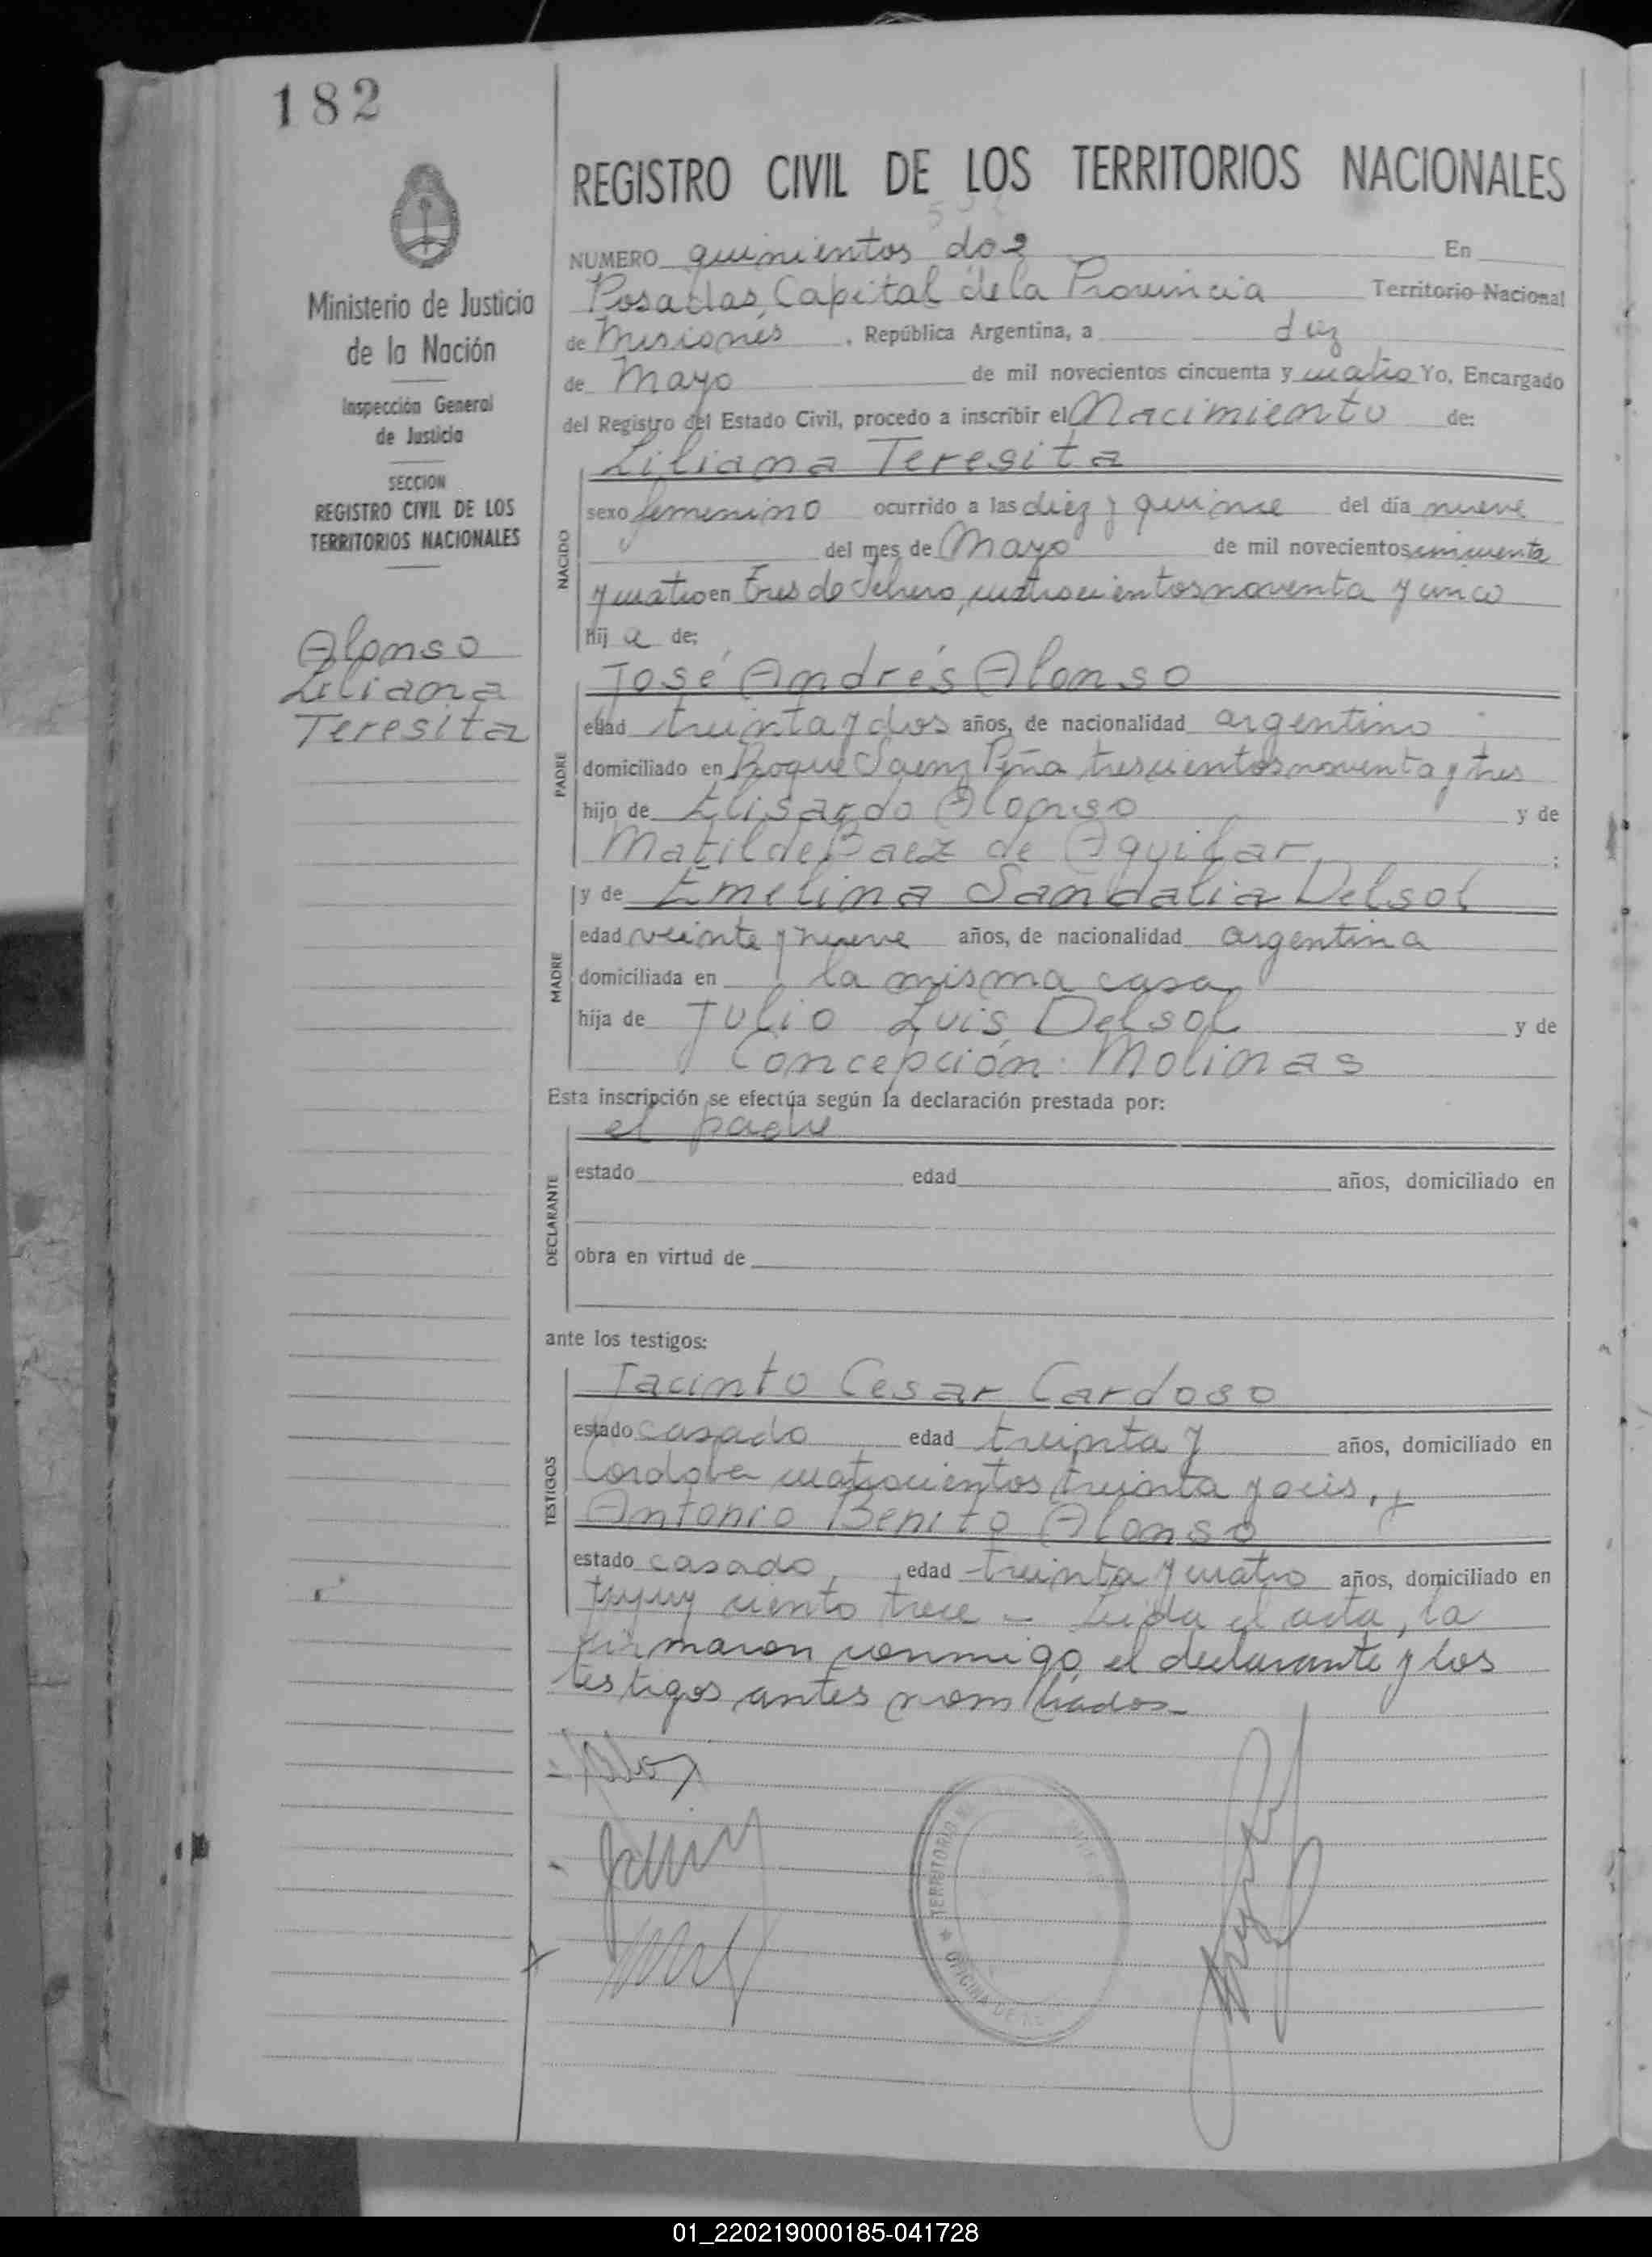 182
REGISTRO CIVIL DE LOS TERRITORIOS NACIONALES
Ministerio de Justicia
de la Nación
Inspección General
de Justicia
SECCION
REGISTRO CIVIL DE LOS
TERRITORIOS NACIONALES
Alonso
Liliana
Teresita
NUMERO quinientos dos En
Posadas, Capital de la Provincia Territorio Nacional
de Misiones, República Argentina, a diez
de Mayo de mil novecientos cincuenta y cuatro Yo, Encargado
del Registro del Estado Civil, procedo a inscribir el Nacimiento de:
Liliana Teresita
NACIDO
sexo femenino ocurrido a las diez y quince del día nueve
del mes de Mayo de mil novecientos cincuenta
y cuatro en Tres de Febrero, cuatrocientos noventa y cinco
hij a de:
José Andrés Alonso
PADRE
edad treinta y dos años, de nacionalidad argentino
domiciliado en Roque Saenz Peña trescientos noventa y tres
hijo de Elisardo Alonso y de
Matilde Baez de Aguilar, ;
y de Emelina Sandalia Delsol
MADRE
edad veinte y nueve años, de nacionalidad argentina
domiciliada en la misma casa,
hija de Julio Luis Delsol y de
Concepción Molinas
Esta inscripción se efectúa según la declaración prestada por:
el padre
DECLARANTE
estado edad años, domiciliado en
obra en virtud de
ante los testigos:
Jacinto Cesar Cardoso
TESTIGOS
estado casado edad treinta y años, domiciliado en
Cordoba cuatrocientos treinta y seis, y
Antonio Benito Alonso
estado casado, edad treinta y cuatro años, domiciliado en
Jujuy ciento trece - Leída el acta, la
firmaron conmigo el declarante y los
testigos antes nombrados-
TERRITORIO
OFICINA DE
01_220219000185-041728